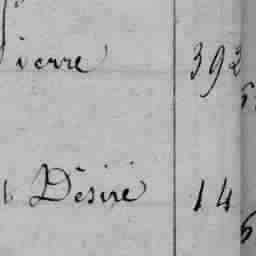 Pierre 392
Désiré 14